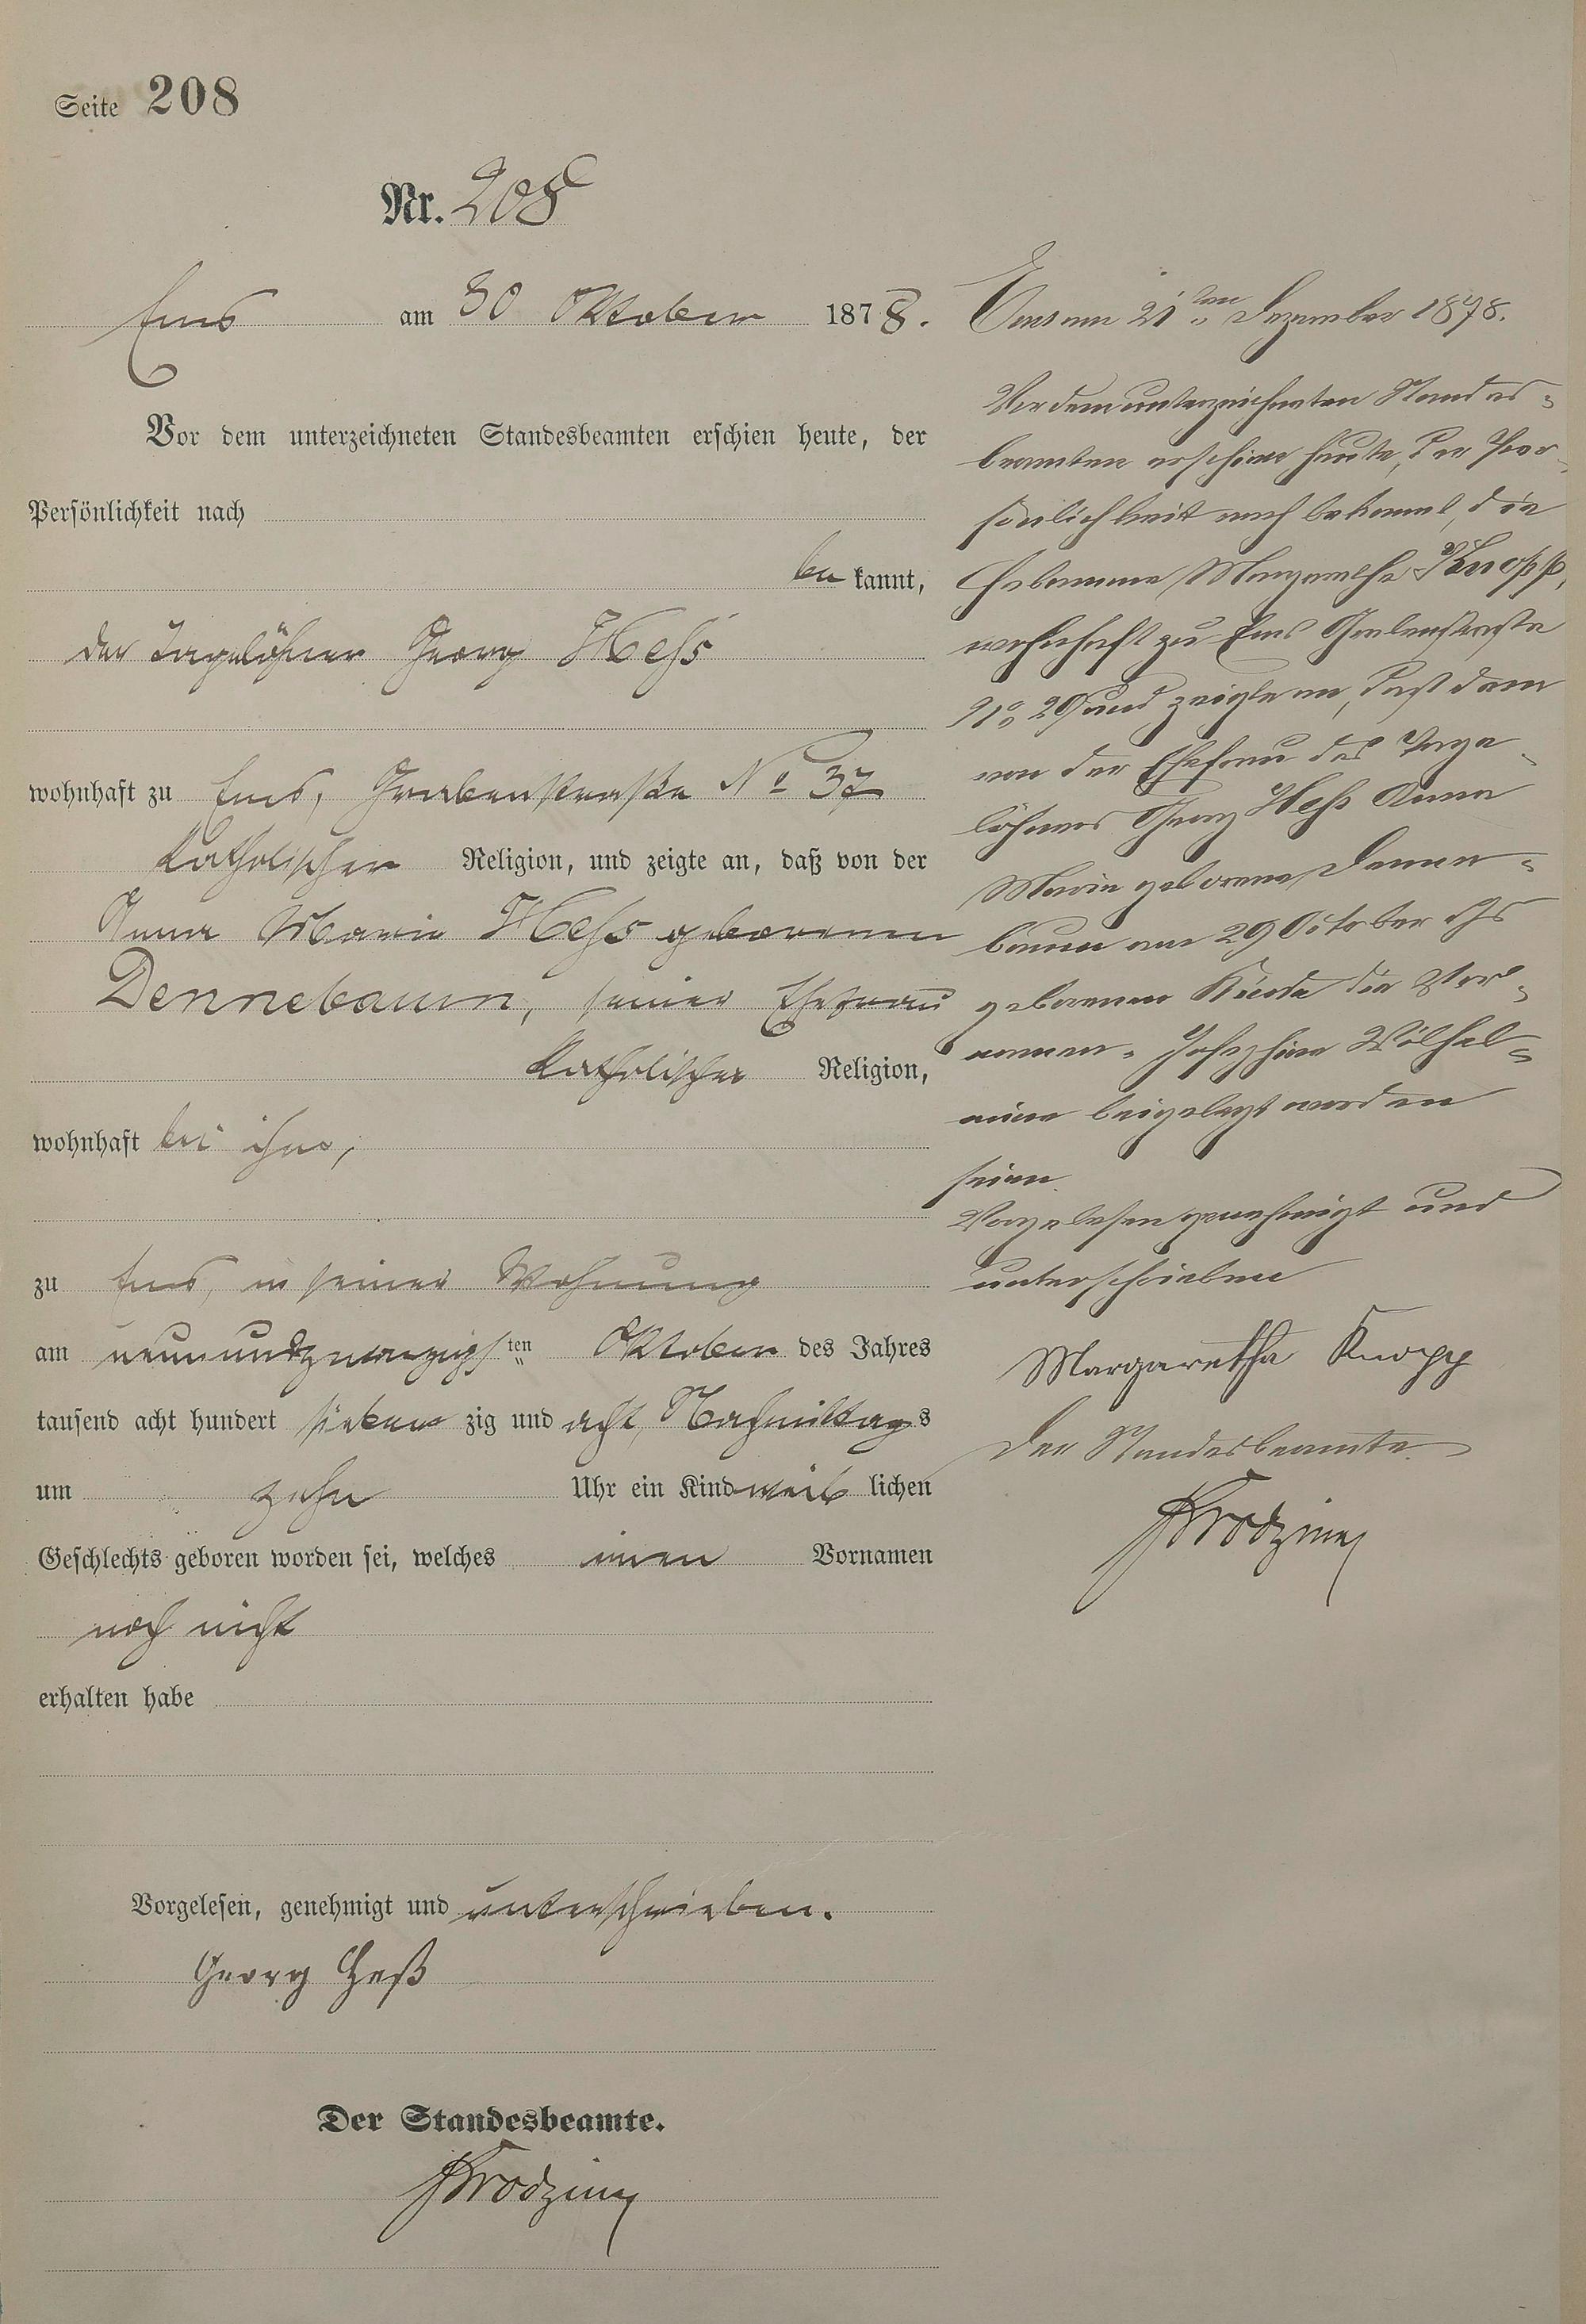 Seite 208
Nr. 208
Ems am 30 Oktober 1878.
Vor dem unterzeichneten Standesbeamten erschien heute, der
Persönlichkeit nach
bekannt,
der Tagelöhner Georg Hess
wohnhaft zu Ems, Grabenstraße No 37
katholischer Religion, und zeigte an, daß von der
Anna Maria Hess geborenen
Dennebaum, seiner Ehefrau
katholischer Religion,
wohnhaft bei ihm,
zu Ems, in seiner Wohnung
am neunundzwanzigsten Oktober des Jahres
tausend acht hundert siebenzig und acht, Nachmittags
um zehn Uhr ein Kind weiblichen
Geschlechts geboren worden sei, welches einen Vornamen
noch nicht
erhalten habe
Vorgelesen, genehmigt und unterschrieben.
Georg Heß
Der Standesbeamte.
Ems am 21ten Dezember 1878.
Vor dem unterzeichneten Standes-
beamten erschien heute, der Per-
sönlichkeit nach bekannt, die
Hebamme Margarethe Knopp,
wohnhaft zu Ems Grabenstraße
No 29 und zeigte an, daß dem
von der Ehefrau des Tage-
löhners Georg Hess Anna
Maria geborene Dennen-
baum am 29 October ds Js
geborenen Kinde die Vor-
namen Josephine Wilhel-
mine beigelegt worden
seien.
Vorgelesen genehmigt und
unterschrieben
Margaretha Knopp
Der Standesbeamte.